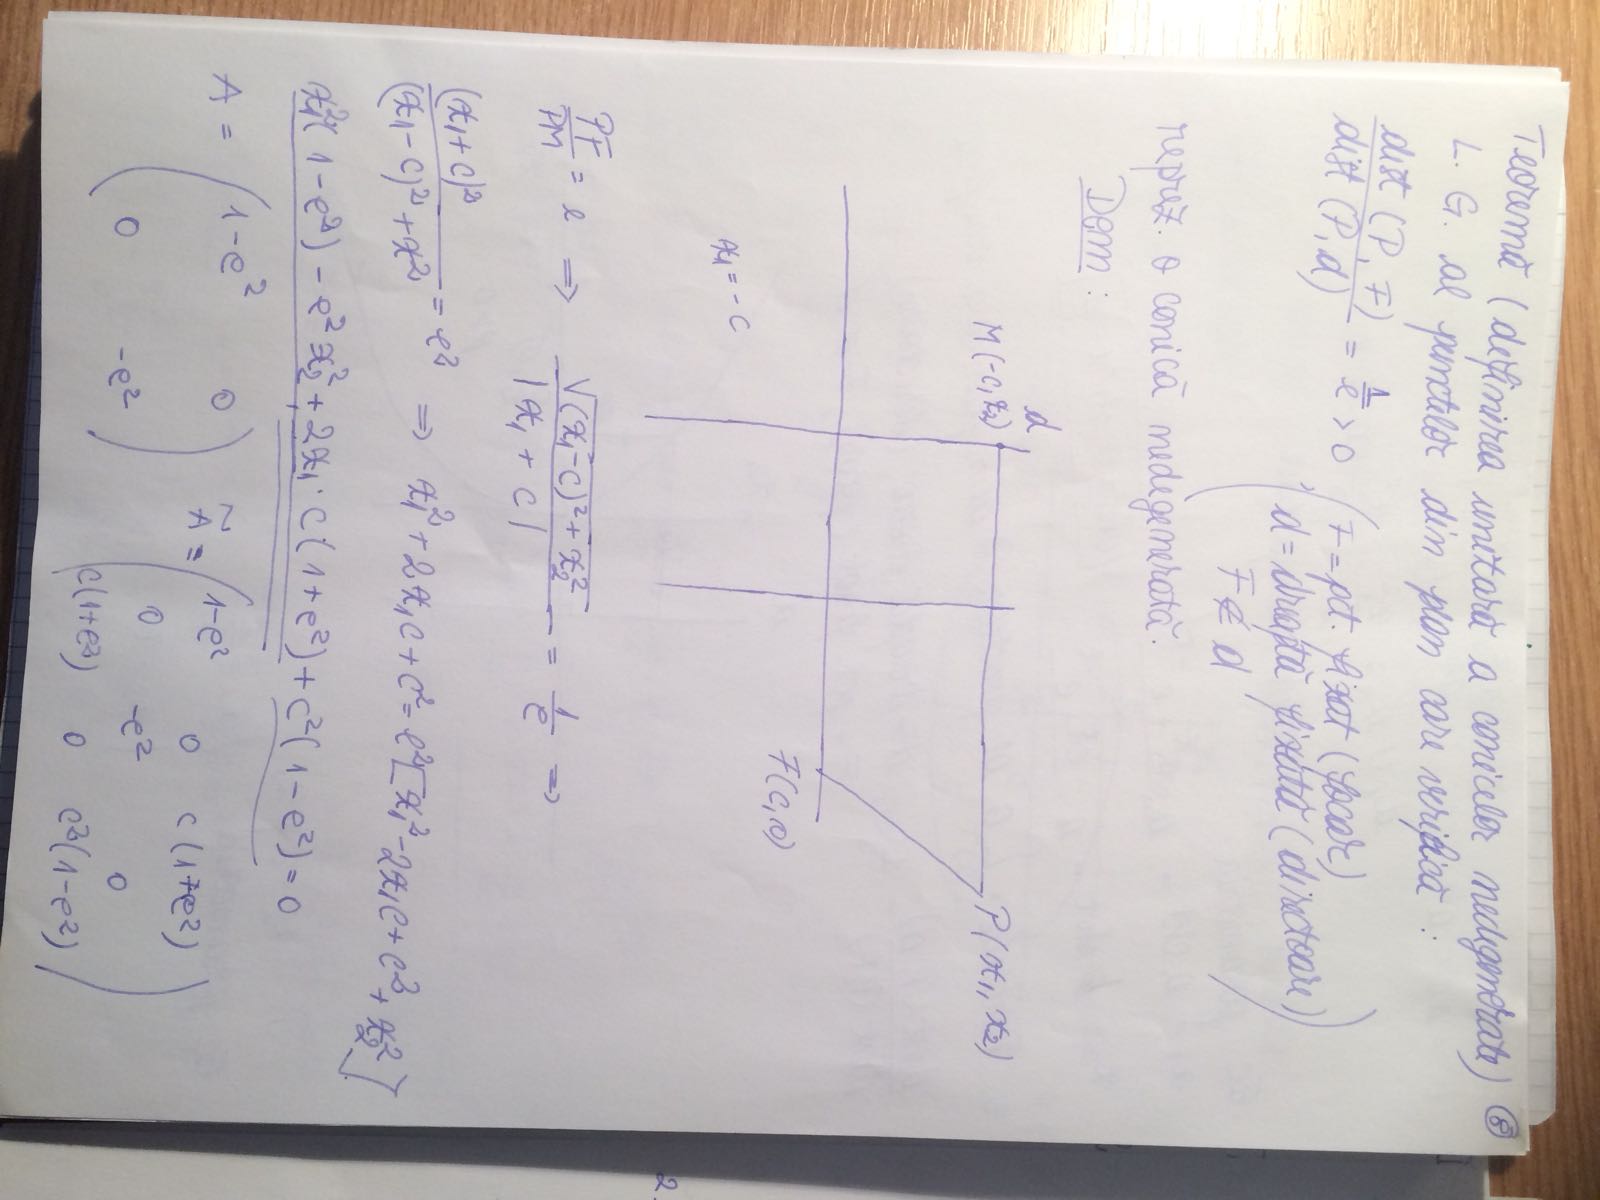 Teoremă (definirea unitară a conicelor nedegenerate) ⑧
L. G. al punctelor din plan care verifică :
dist (P, F) / dist (P, d) = 1/e > 0 , ( F = pt. fixat (focar)
d = dreaptă fixată (directoare) )
F ∉ d
reprez. o conică nedegenerată.
Dem :
M (-c, x₂) d P (x₁, x₂)
x₁ = - c F(c, 0)
PF/PM = e ⇒ √((x₁-c)² + x₂²) / |x₁ + c| = 1/e ⇒
(x₁+c)² / ((x₁-c)² + x₂²) = e² ⇒ x₁² + 2x₁c + c² = e²[x₁² - 2x₁c + c² + x₂²]
x₁²(1-e²) - e²x₂² + 2x₁·c(1+e²) + c²(1-e²) = 0
A = ( 1-e² 0
0 -e² )
Ã = ( 1-e² 0 c(1+e²)
0 -e² 0
c(1+e²) 0 c²(1-e²) )
2